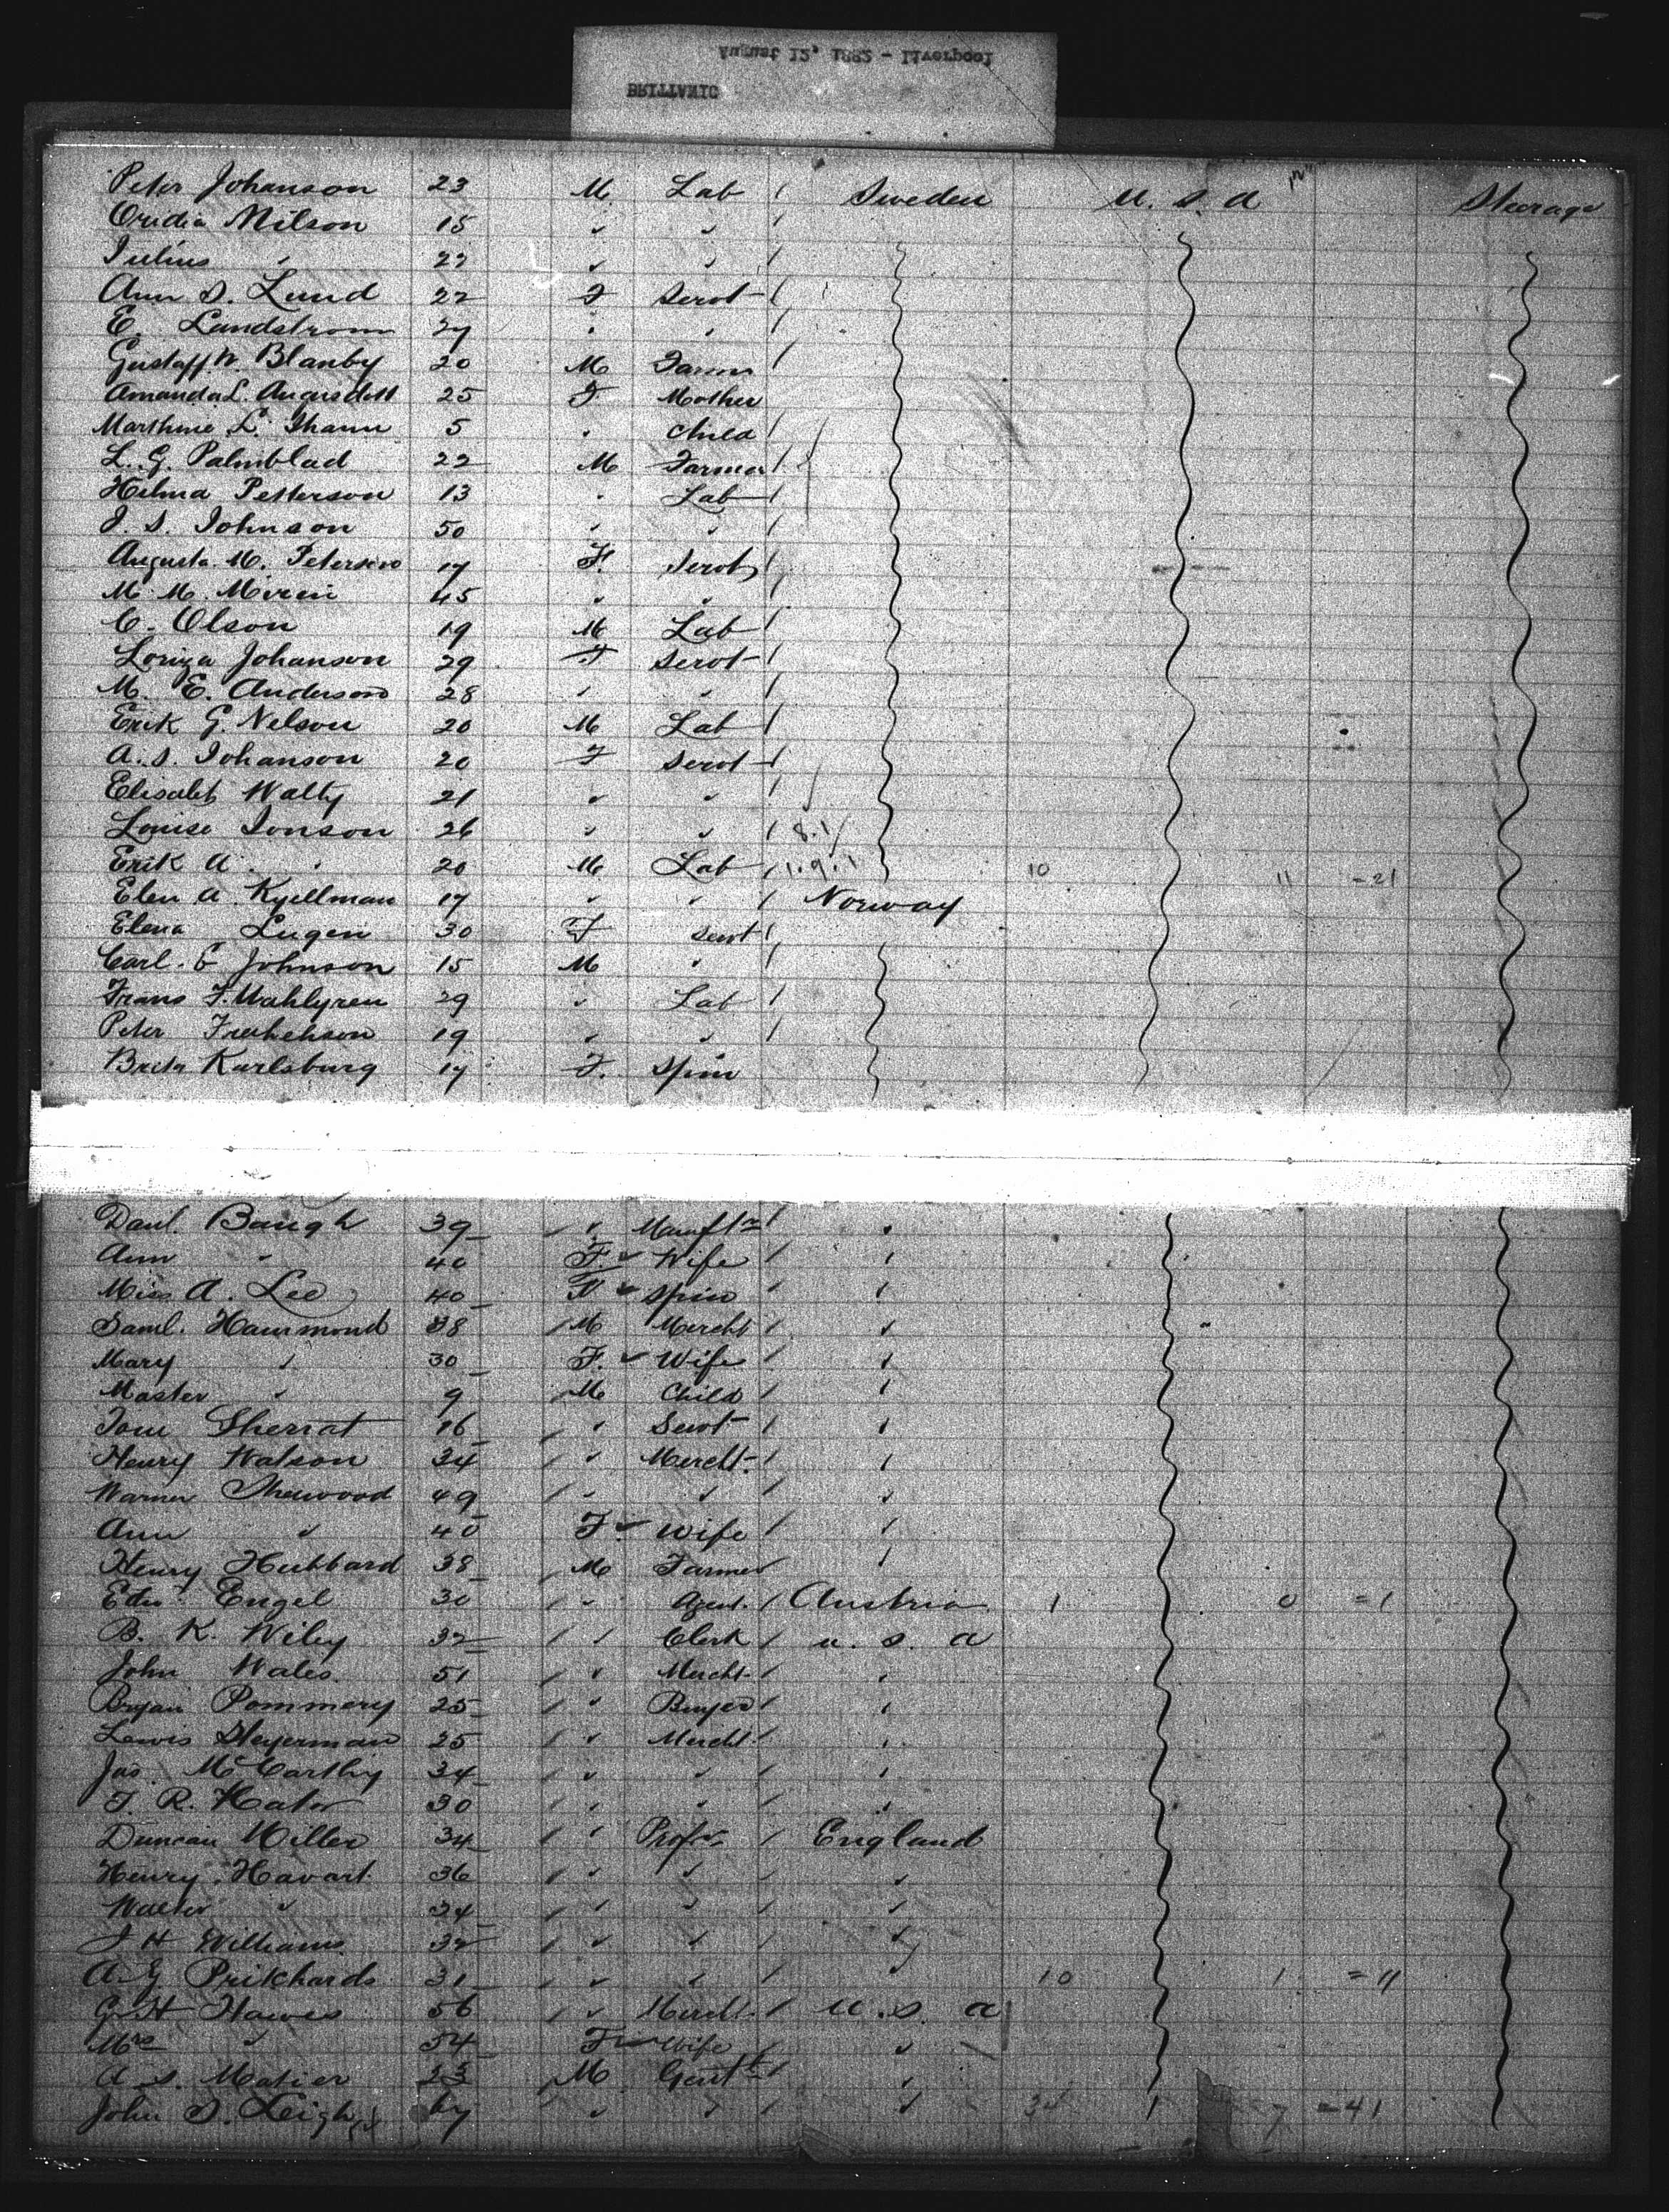 August 12, 1882 - Liverpool
BRITTANIC
Peter Johanson 23 M Lab / Sweden U. S. A Steerage
Oridia Nilson 15 " " /
Julius " 22 " " /
Ann S. Lund 22 F Servt /
E. Lundstrom 27 " " /
Gustaff W. Blanby 20 M Farmr /
Amanda L. 25 F Mother
L. 5 " Child /
L. G. Palmblad 22 M Farmer /
Hilma Petterson 13 " Lab /
J. S. Johnson 50 " " /
Augusta M. Peterson 17 F. Servt /
M. M. 45 " " /
C. Olson 19 M Lab /
Johanson 29 F Servt /
M. E. Anderson 28 " " /
Erik G. Nelson 20 M Lab /
A. S. Johanson 20 F Servt /
Elisabet Walty 21 " " /
Louise Jonson 26 " " / 8.1/
Erik A " 20 M Lab / 1.9.1 10 11 -21
Elen A. Kyellman 17 " " / Norway
Elena Lugen 30 F Servt /
Carl. E Johnson 15 M " /
Frans F. Wahlyren 29 " Lab /
Peter 19 " " /
Brita Karlsburg 17 F. Spin
Danl. Baugh 39 / " Manftr / "
Ann " 40 F. Wife / "
Miss A. Lee 40 F Spin / "
Saml. Hammond 38 / M Mercht / "
Mary " 30 F. Wife / "
Master " 9 / M Child / "
Tom Sherrat 16 / " Servt / "
Henry Watson 34 / " Mercht / "
Warner Sherwood 49 / " " / "
Ann " 40 F Wife / "
Henry Hubbard 38 / M Farmer "
Edw Engel 30 / " Agent. / Austria 1 0 =1
B. K. Wiley 32 / " Clerk / U. S. A
John Wales 51 / " Mercht / "
Bryan Pommery 25 / " Buyer / "
Lewis Steyerman 25 / " Mercht / "
Jas. McCarthy 34 / " " / "
T. R. 30 / " " / "
Duncan Miller 34 / " Profr / England
Henry Havart 36 / " " "
Walter " 34 / " " / "
J H Williams 32 / " " / "
A G Pritchards 31 / " " / " 10 1 =11
G H Hawes 56 / " Mercht / U. S. A
Mrs " 54 F Wife / "
A. S. Matier 23 / M Gentl / "
John S. Leigh 67 " " / " 34 7 =41